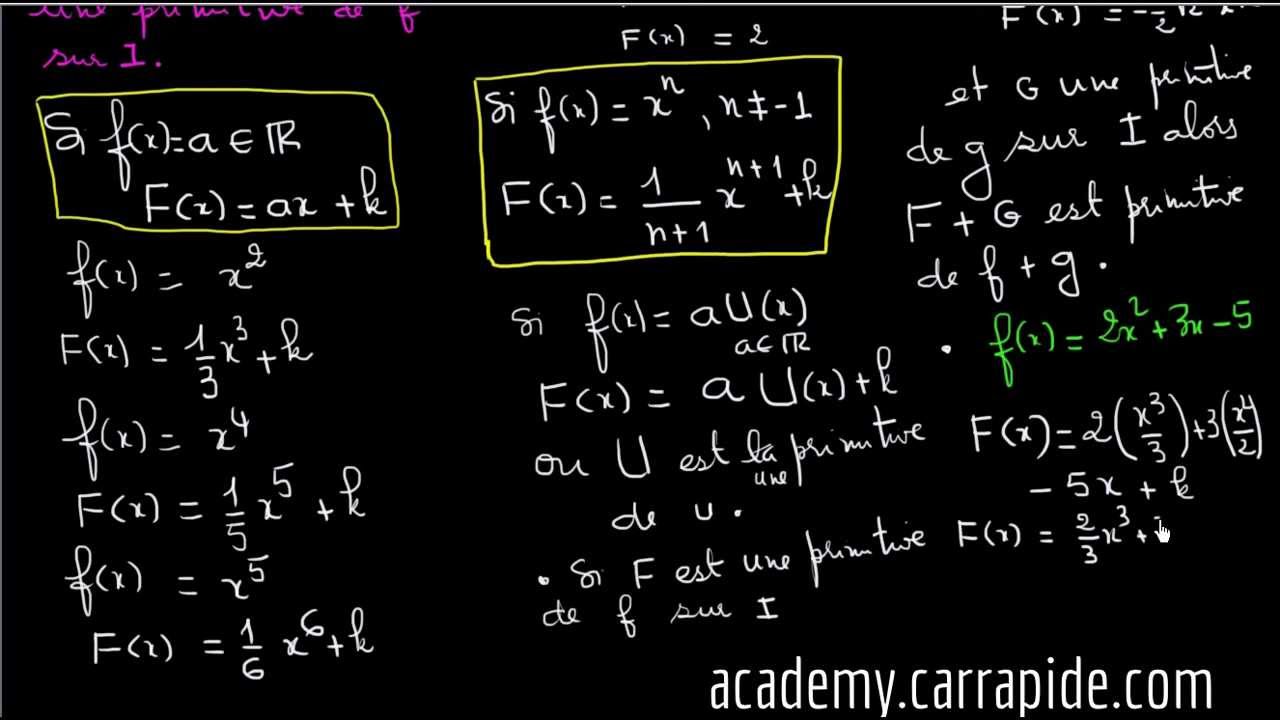 une primitive de f
sur I.
Si f(x)=a∈ℝ
F(x)=ax+k
f(x) = x²
F(x) = 1/3 x³+k
f(x) = x⁴
F(x) = 1/5 x⁵ + k
f(x) = x⁵
F(x) = 1/6 x⁶+k
F(x) = 2
Si f(x) = xⁿ, n≠-1
F(x) = 1/(n+1) xⁿ⁺¹+k
Si f(x) = aU(x)
a∈ℝ
F(x) = aU(x)+k
ou U est la primitive
une
de u.
• Si F est une primitive
de f sur I
F(x) =
et G une primitive
de g sur I alors
F + G est primitive
de f + g.
• f(x) = 2x²+3x-5
F(x)=2(x³/3)+3(x⁴/2)
- 5x + k
F(x) = 2/3 x³+
academy.carrapide.com